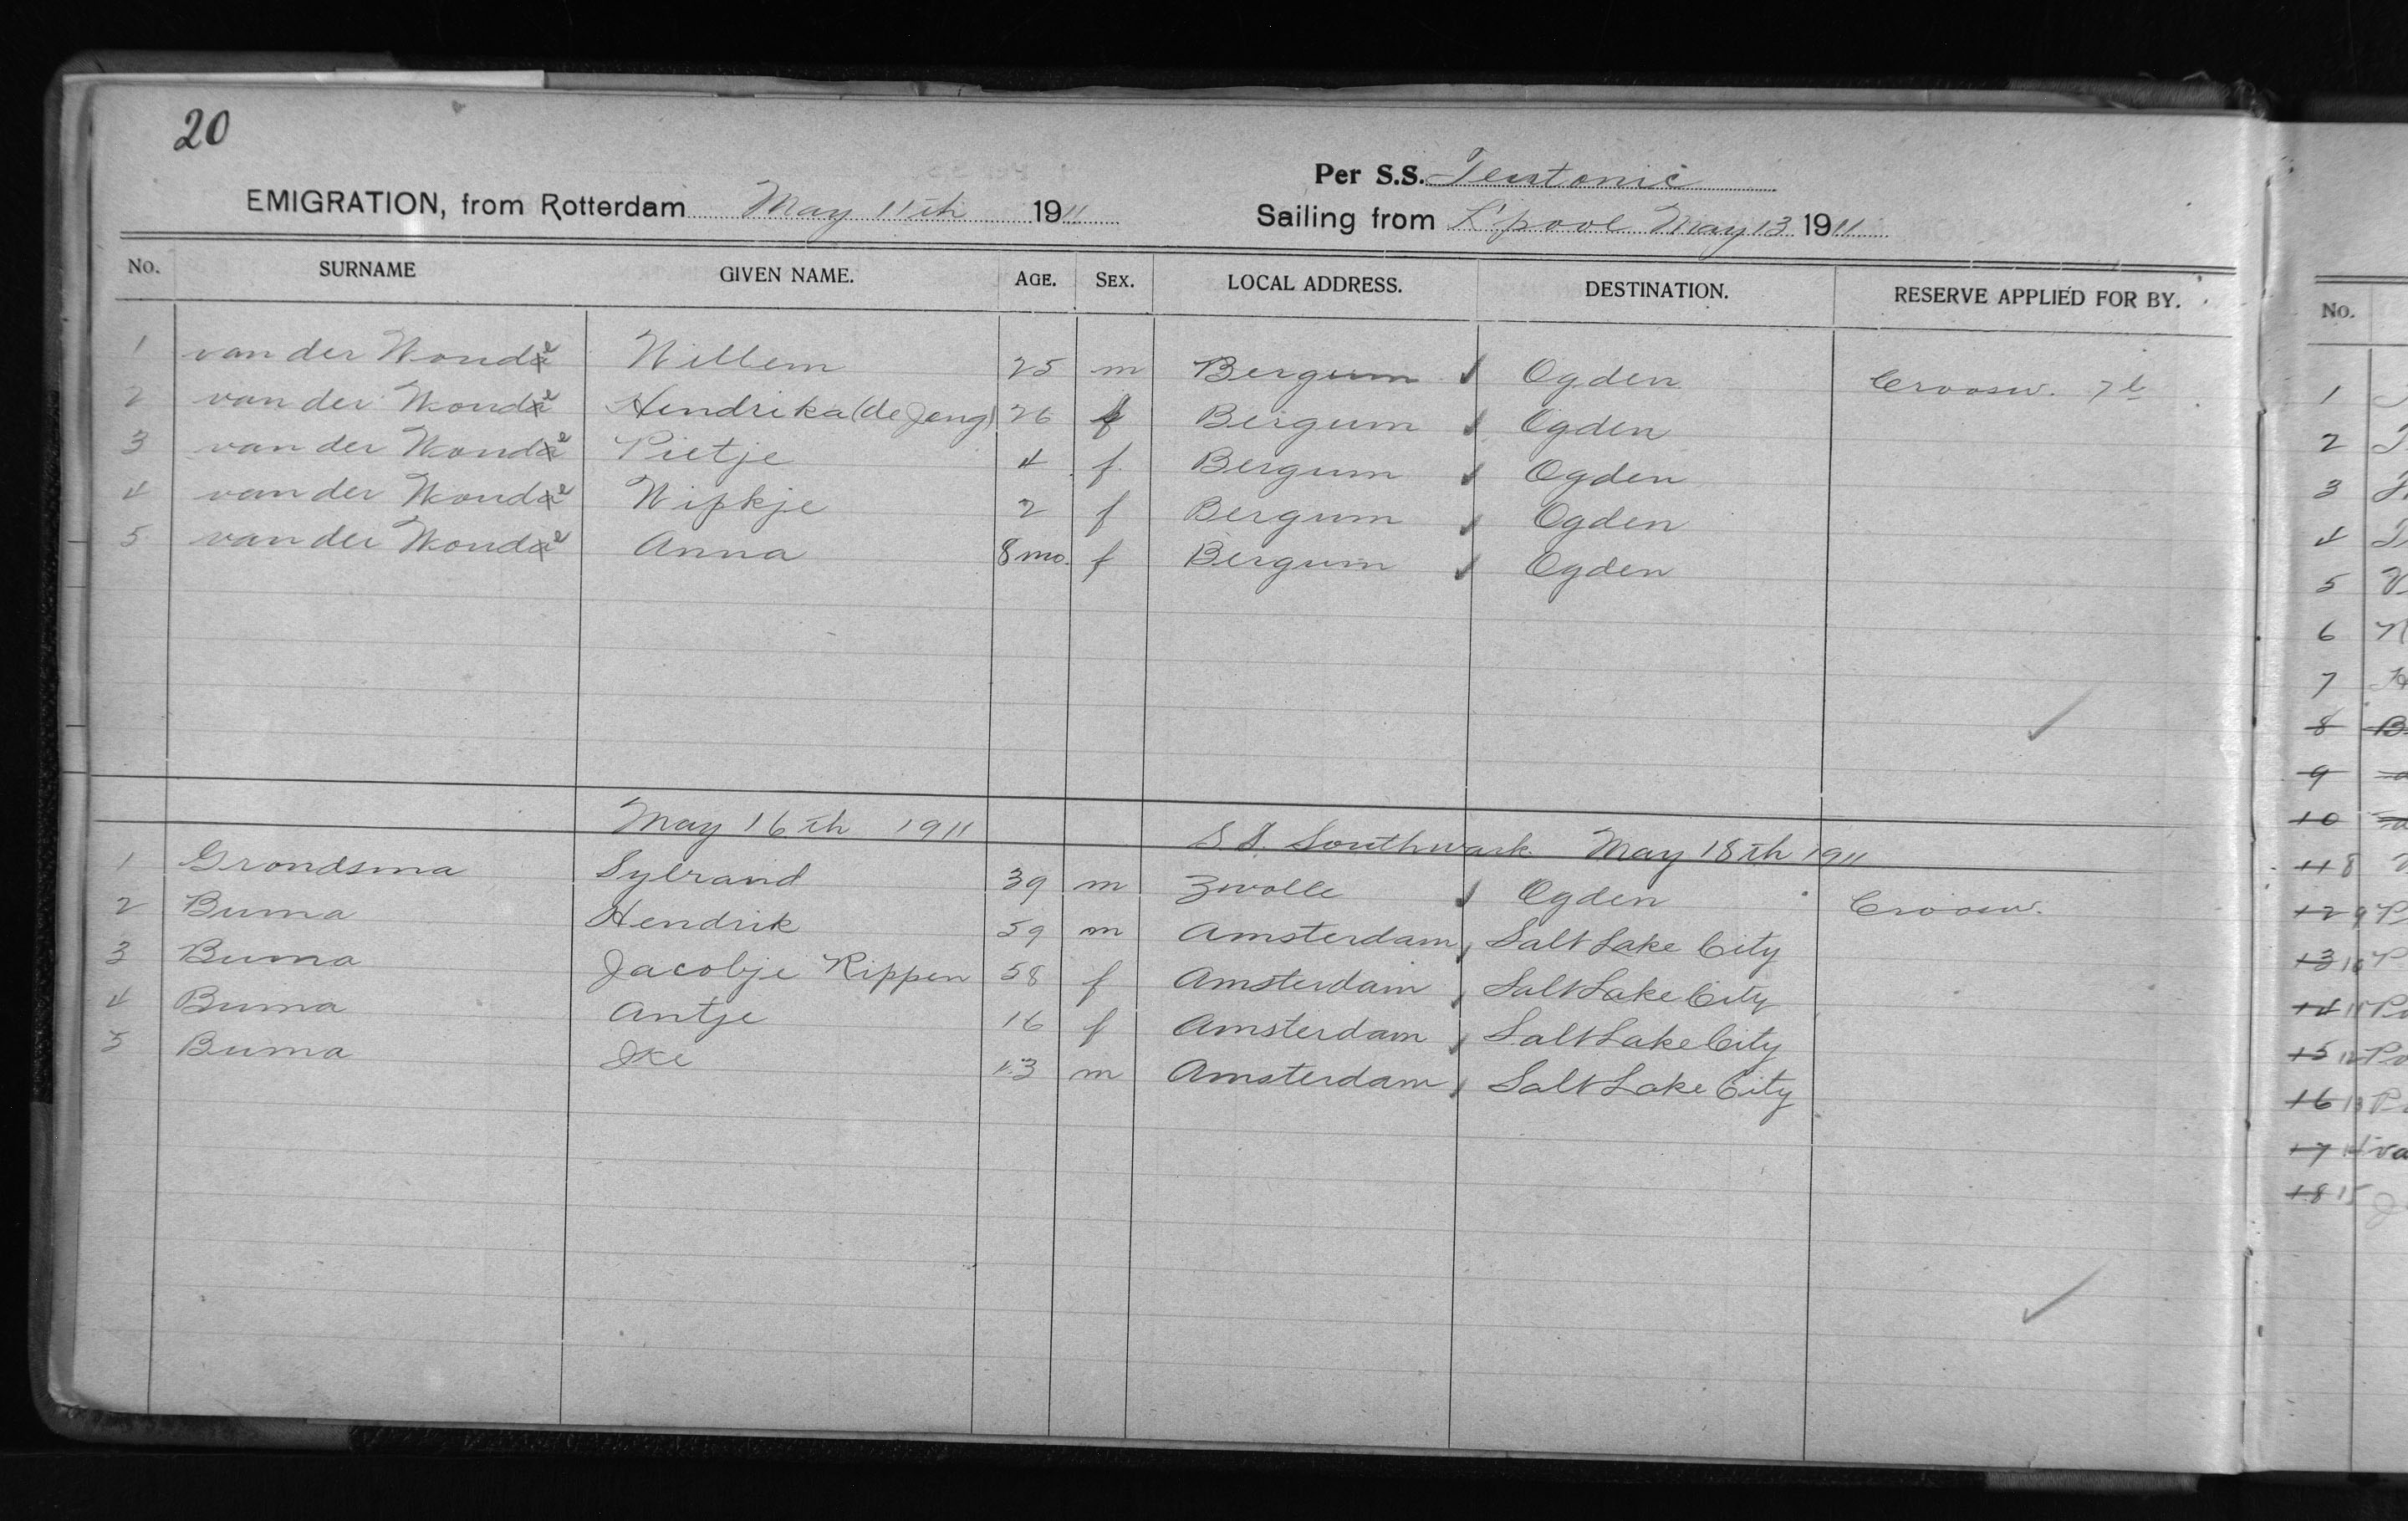 20
Per S.S. Teutonic
EMIGRATION, from Rotterdam May 11th 1911 Sailing from L'pool May 13 1911
No. SURNAME GIVEN NAME. AGE. SEX. LOCAL ADDRESS. DESTINATION. RESERVE APPLIED FOR BY.
1 van der Woude Willem 25 m Bergum Ogden Croosw. 7
2 van der Woude Hendrika (de Jong) 26 f Bergum Ogden
3 van der Woude Pietje 4 f. Bergum Ogden
4 van der Woude Wipkje 2 f Bergum Ogden
5 van der Woude Anna 8 mo. f Bergum Ogden
May 16th 1911 S.S. Southwark May 18th 1911
1 Grondsma Sybrand 39 m Zwolle Ogden Croosw.
2 Buma Hendrik 59 m Amsterdam Salt Lake City
3 Buma Jacobje Rippen 58 f Amsterdam Salt Lake City
4 Buma Antje 16 f Amsterdam Salt Lake City
5 Buma Ike 13 m Amsterdam Salt Lake City
No.
1
2
3
4
5
6
7
8
9
10
11 8
12 9
13 10
14 11
15 12
16 13
17
18 15